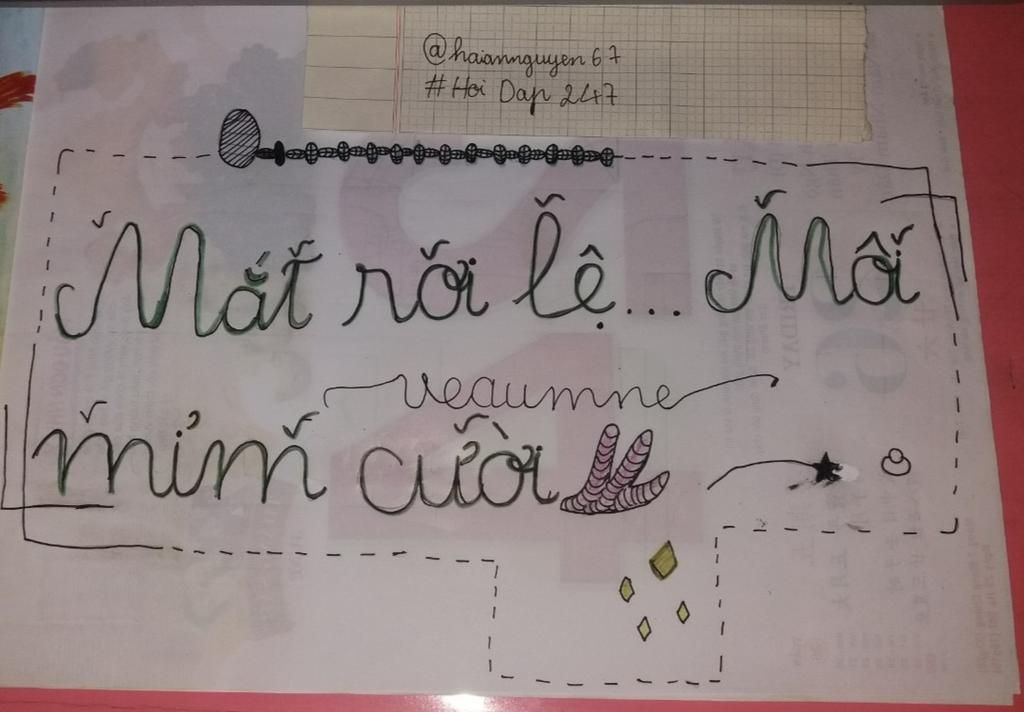 @haiannguyen67
#Hoi Dap 247
Mắt rơi lệ... Môi
veaumne
mỉm cười